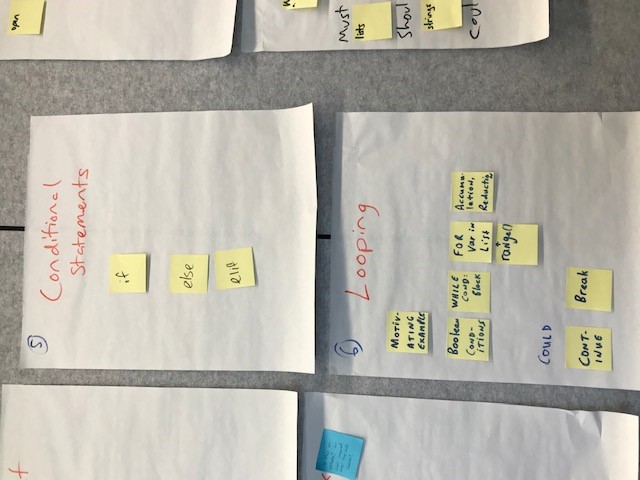 f
5
Conditional
Statements
if
else
elif
6
Looping
MOTIV-
ATING
EXAMPLE
Boolean
COND-
ITIONS
WHILE
COND:
Block
FOR
Var in
List
range()
Accumu-
lation,
Reductio
COULD
CONT-
INUE
Break
open
Must
lists
Shoul
strings
Coul